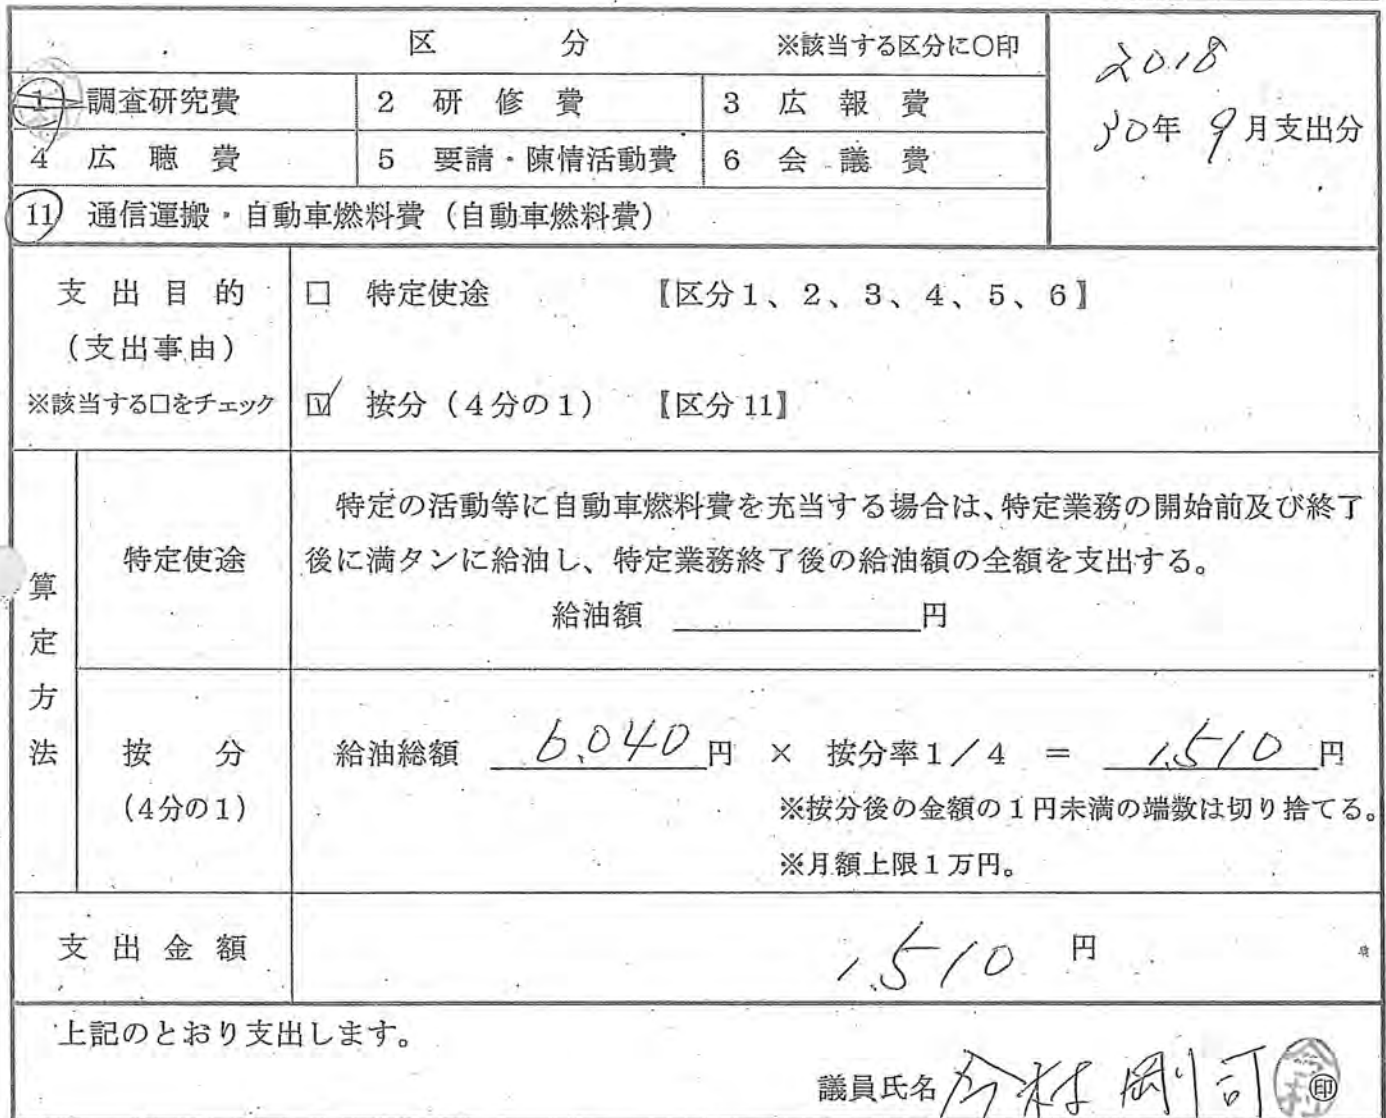 区 分 ※該当する区分に○印
2018
30年 9月支出分
1 調査研究費 2 研 修 費 3 広 報 費
4 広 聴 費 5 要請・陳情活動費 6 会 議 費
11 通信運搬・自動車燃料費（自動車燃料費）
支 出 目 的
（支出事由）
※該当する□をチェック
□ 特定使途 〖区分1、2、3、4、5、6〗
☑ 按分（4分の1） 〖区分11〗
算定方法
特定使途
特定の活動等に自動車燃料費を充当する場合は、特定業務の開始前及び終了
後に満タンに給油し、特定業務終了後の給油額の全額を支出する。
給油額 円
按 分
（4分の1）
給油総額 6,040円 × 按分率1／4 ＝ 1,510円
※按分後の金額の1円未満の端数は切り捨てる。
※月額上限1万円。
支 出 金 額
1,510 円
上記のとおり支出します。
議員氏名 今村 剛司 印